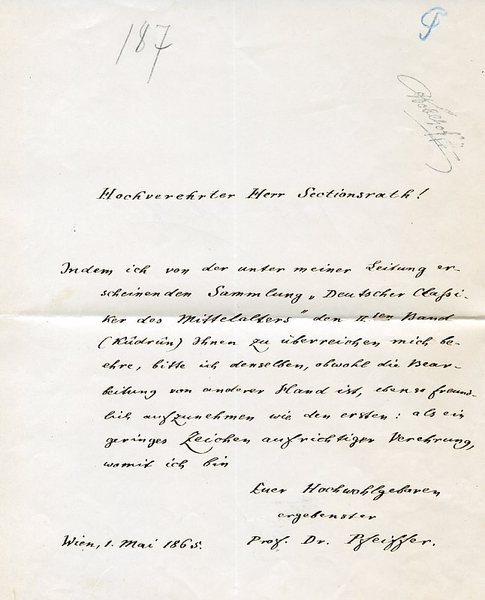 187
Hochverehrter Herr Sectionsrath!
Indem ich von der unter meiner Leitung er-
scheinenden Sammlung „Deutscher Classi-
ker des Mittelalters" den II.ten Band
(Kûdrûn) Ihnen zu überreichen mich be-
ehre, bitte ich denselben, obwohl die Bear-
beitung von anderer Hand ist, eben so freund-
lich aufzunehmen wie den ersten: als ein
geringes Zeichen aufrichtiger Verehrung,
womit ich bin
Euer Hochwohlgeboren
ergebenster
Wien, 1. Mai 1865. Prof. Dr. Pfeiffer.